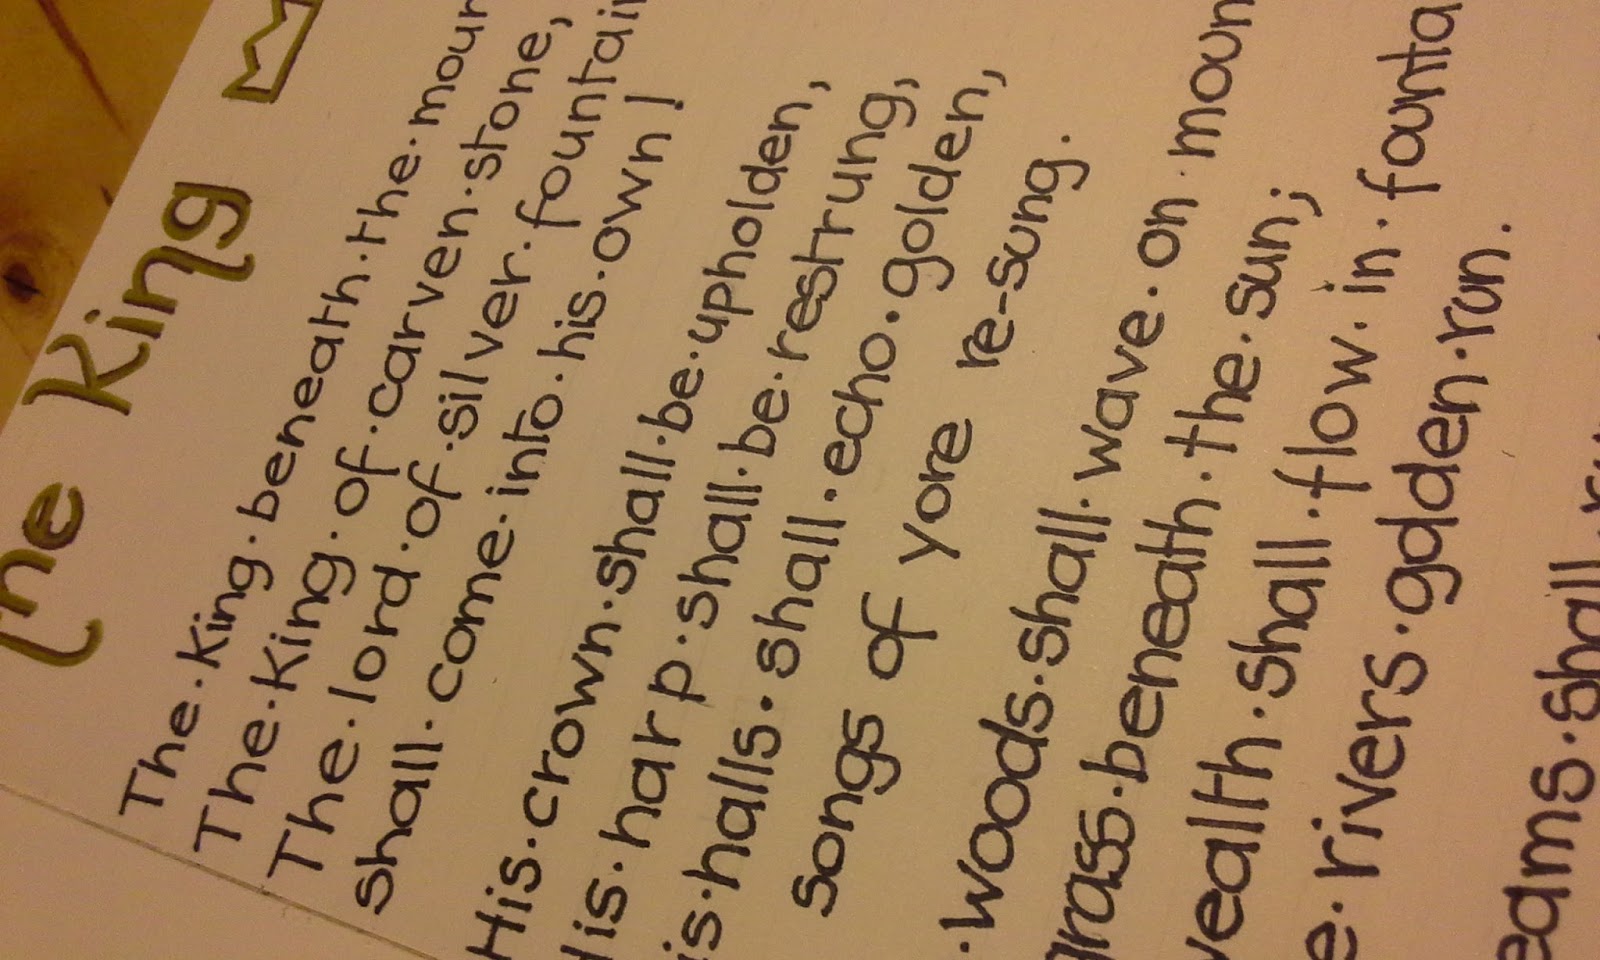 The King
The·King·beneath·the·moun
The·King·of·carven·stone,
The·lord·of·silver·fountai
shall·come·into·his·own!
His·crown·shall·be·upholden,
His·harp·shall·be·restrung,
is·halls·shall·echo·golden,
songs of yore re-sung.
·woods·shall·wave·on·moun
grass·beneath·the·sun;
wealth·shall·flow·in·founta
e·rivers·golden·run.
eams·shall